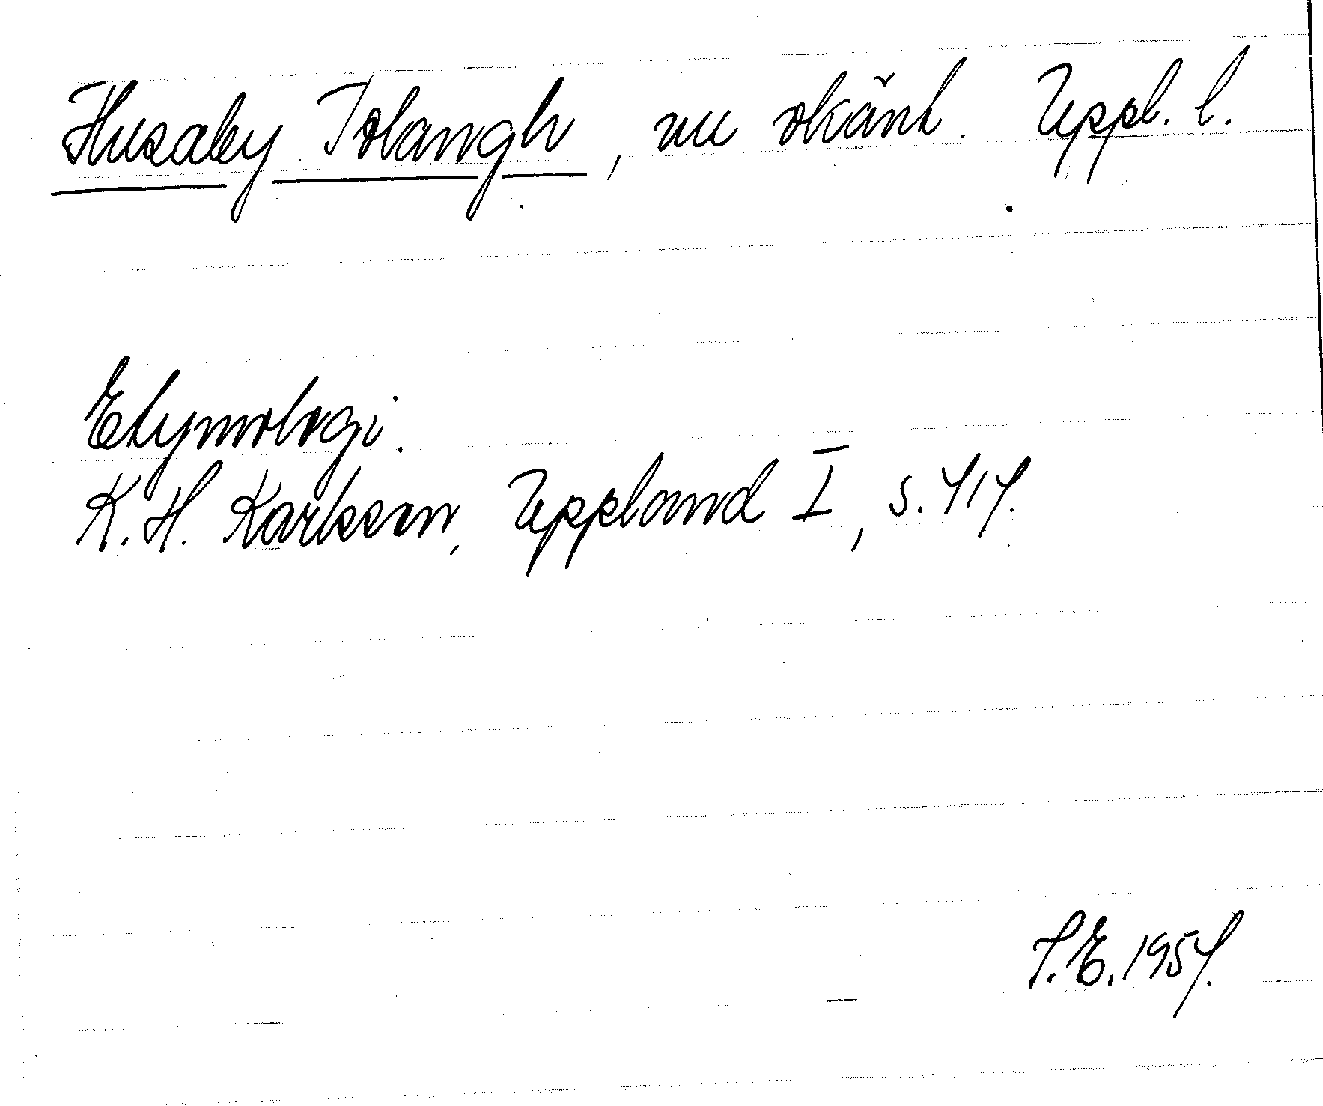 Husaby Tolangh, nu okänt. Uppl. l.
Etymologi.
K. H. Karlsson, Uppland I, s. 414.
S.E. 1954.